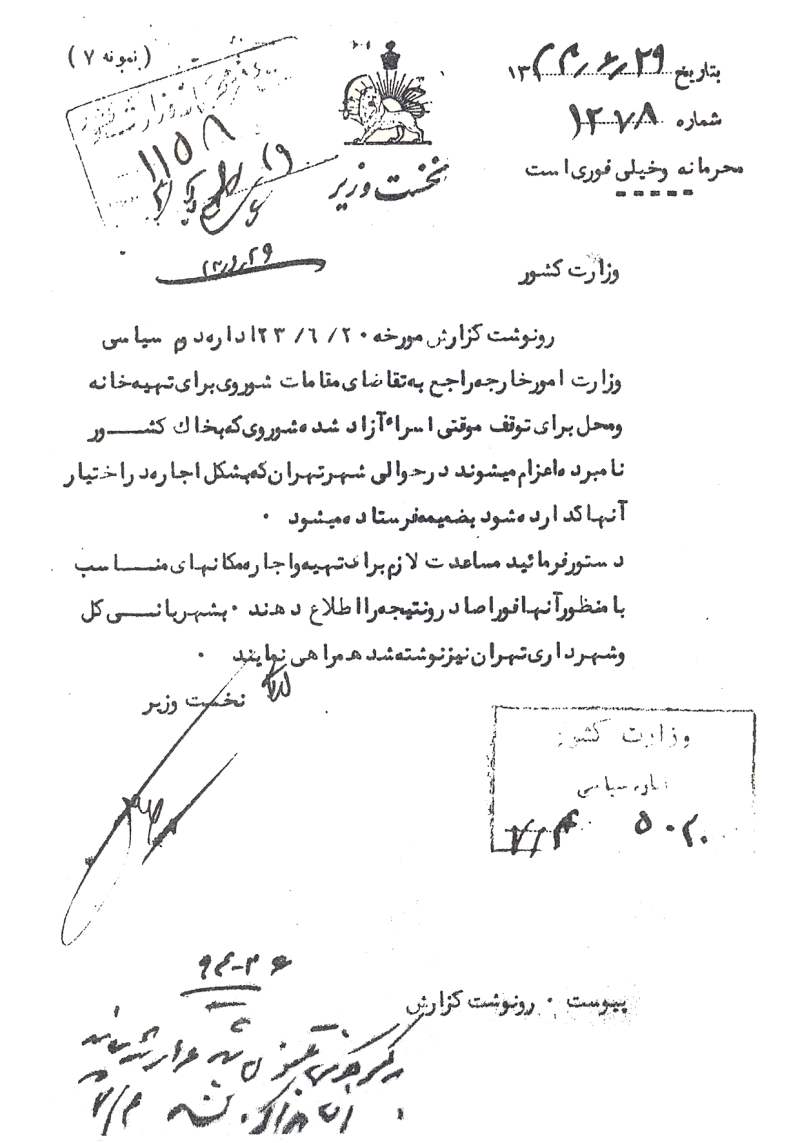 (نمونه ۷)
بتاریخ ۲۹/۶/۱۳۲۳
شماره ۱۲۷۸۱
محرمانه وخیلی فوری است
نخست وزیر
۱۱۵۸
۲۳/۶/۲۹
وزارت کشور
رونوشت گزارش مورخه ۲۳/۶/۲۰ اداره دوم سیاسی
وزارت امورخارجه راجع به تقاضای مقامات شوروی برای تهیه خانه
ومحل برای توقف موقتی اسراء آزاد شده شوروی که بخاک کشــور
نامبرده اعزام میشوند درحوالی شهر تهران که بشکل اجاره در اختیار
آنها گذارده شود بضمیمه فرستاده میشود ۰
دستور فرمائید مساعدت لازم برای تهیه و اجاره مکانهای منــاسب
با منظور آنها فورا صادر و نتیجه را اطلاع دهند ۰ بشهربانــی کل
وشهرداری تهران نیز نوشته شد همراهی نمایند ۰
نخست وزیر
وزارت کشور
اداره سیاسی
پیوست ۰ رونوشت گزارش